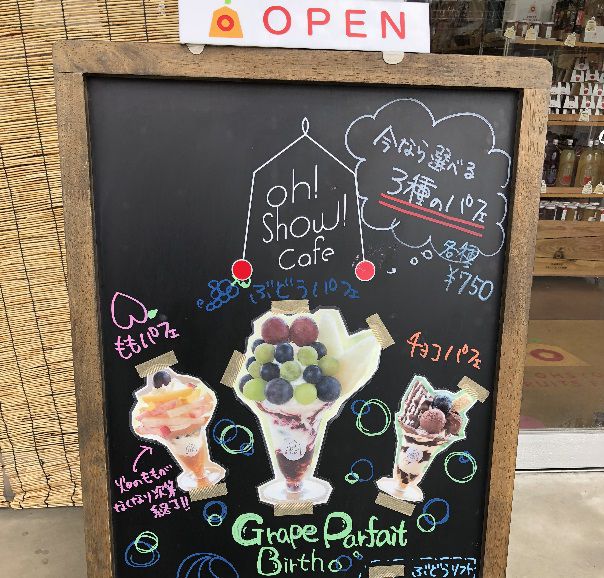 OPEN
今なら選べる
3種のパフェ
各種
¥750
oh!
Show!
Cafe
ぶどうパフェ
ももパフェ
チョコパフェ
畑のももが
なくなり次第
終了!!
Grape Parfait
Birth
ぶどうソフト